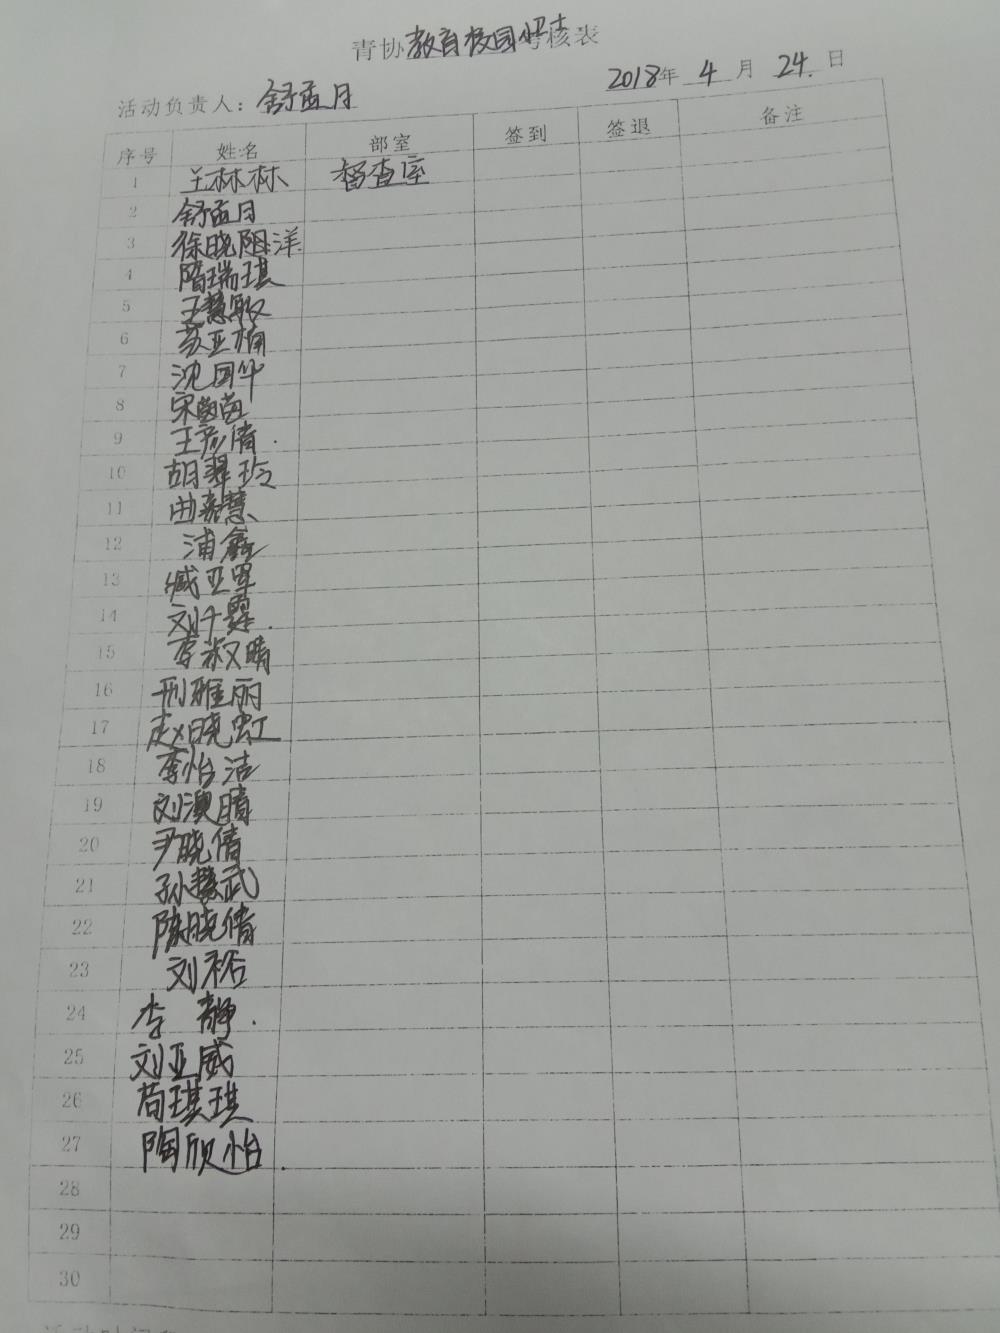 青协教育校园考核表
活动负责人：舒孟月 2018年 4 月 24. 日
序号 姓名 部室 签到 签退 备注
1 王林林 督查室
2 舒孟月
3 徐晓阳洋
4 隋瑞琪
5 王慧敏
6 苏亚楠
7 沈国华
8 宋茵茵
9 王彦倩.
10 胡翠玲
11 曲慧
12 浦鑫
13 臧亚军
14 刘千霆.
15 李淑晴
16 邢雅丽
17 赵晓虹
18 李怡洁
19 刘澳晴
20 尹晓倩
21 孙慧武
22 陈晓倩
23 刘裕
24 李静.
25 刘亚威
26 苟琪琪
27 陶欣怡.
28
29
30